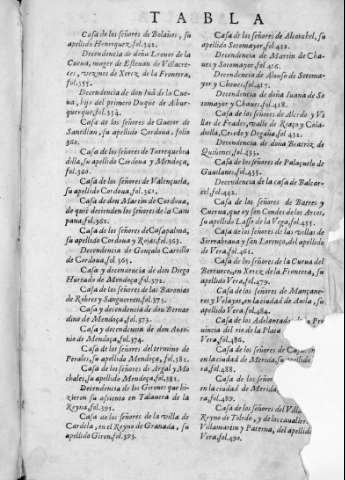 TABLA
Casa de los señores de Bolaños, su
apellido Henriquez. fol. 342.
Decendencia de doña Leonor de la
Cueua, muger de Esteuan de Villacre-
ces, vezinos de Xerez de la Frontera,
fol. 355.
Decendencia de don Iuã de la Cue-
ua, hijo del primero Duque de Albur-
querque. fol. 354.
Casa de los señores de Gueter de
Santillan, su apellido Cordoua, folio
360.
Casa de los señores de Torrequebra
dilla, su apellido Cordoua y Mendoça,
fol. 360.
Casa de los señores de Valençuela,
su apellido Cordoua, fol. 361.
Casa de don Martin de Cordoua,
de quiẽ decienden los señores de la Cam
pana, fol. 362.
Casa de los señores de Casapalma,
su apellido Cordoua y Rojas, fol. 363.
Decendencia de Gonçalo Carrillo
de Cordoua, fol. 365.
Casa y decendencia de don Diego
Hurtado de Mendoça, fol. 372.
Casa de los señores de las Baronias
de Robres y Sangueren, fol. 373.
Casa y decendencia de don Bernar
dino de Mendoça, fol. 373.
Casa y decendencia de don Anto-
nio de Mendoça, fol. 374.
Casa de los señores del termino de
Perales, su apellido Mendoça, fol. 381.
Casa de los señores de Argal y Mo
chales, su apellido Mendoça, fol. 382.
Decendencia de los Girones que hi-
zieron su assiento en Talauera de la
Reyna, fol. 391.
Casa de los señores de la villa de
Cardela, en el Reyno de Granada, su
apellido Giron, fol. 393.
Casa de los señores de Alconchel, su
apellido Sotomayor, fol. 422.
Decendencia de Martin de Cha-
ues y Sotomayor, fol. 416.
Decendencia de Alonso de Sotoma-
yor y Chaues, fol. 417.
Decendencia de doña Iuana de So-
tomayor y Chaues, fol. 418.
Casa de los señores de Alcedo y Vi
llar de Frades, valle de
y
fol. 432.
Decendencia de doña Beatriz de
Quiñones, fol. 433.
Casa de los señores de Palaçuelo de
fol. 435.
Decendencia de la casa de
fol. 442.
Casa de los señores de Batres y
Cuerua, que oy son Condes de los Arcos,
su apellido Lasso de la Vega, fol. 455.
Casa de los señores de las villas de
Sierrabraua y san Lorenço, del apellido
de Vera, fol. 461.
Casa de los señores de la Cueua del
Berrueco, en Xerez de la Frontera, su
apellido Vera, fol. 479.
Casa de los señores de Mançane-
ros y Velayos, en la ciudad de Auila, su
apellido Vera, fol. 484.
Casa de los Adelantados
uincia del rio de la Plata
Vera, fol. 486.
Casa de los señores de
en la ciudad de Merida, su apellido
ra, fol. 488.
Casa de los señores
en la ciudad de Merida,
ra, fol. 489.
Casa de los señores del Villa
Reyno de Toledo, y de los caualleros
Villamartin y Paterna, del apellido
Vera, fol. 490.